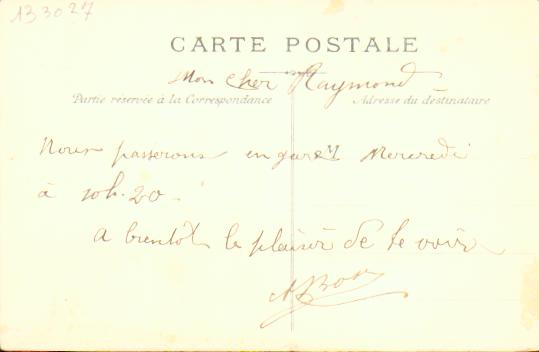 133027
CARTE POSTALE
Mon cher Raymond
Partie réservée à la Correspondance
Adresse du destinataire
Nous passerons en gare Mercredi
à 10h.20.
A bientôt le plaisir de te voir